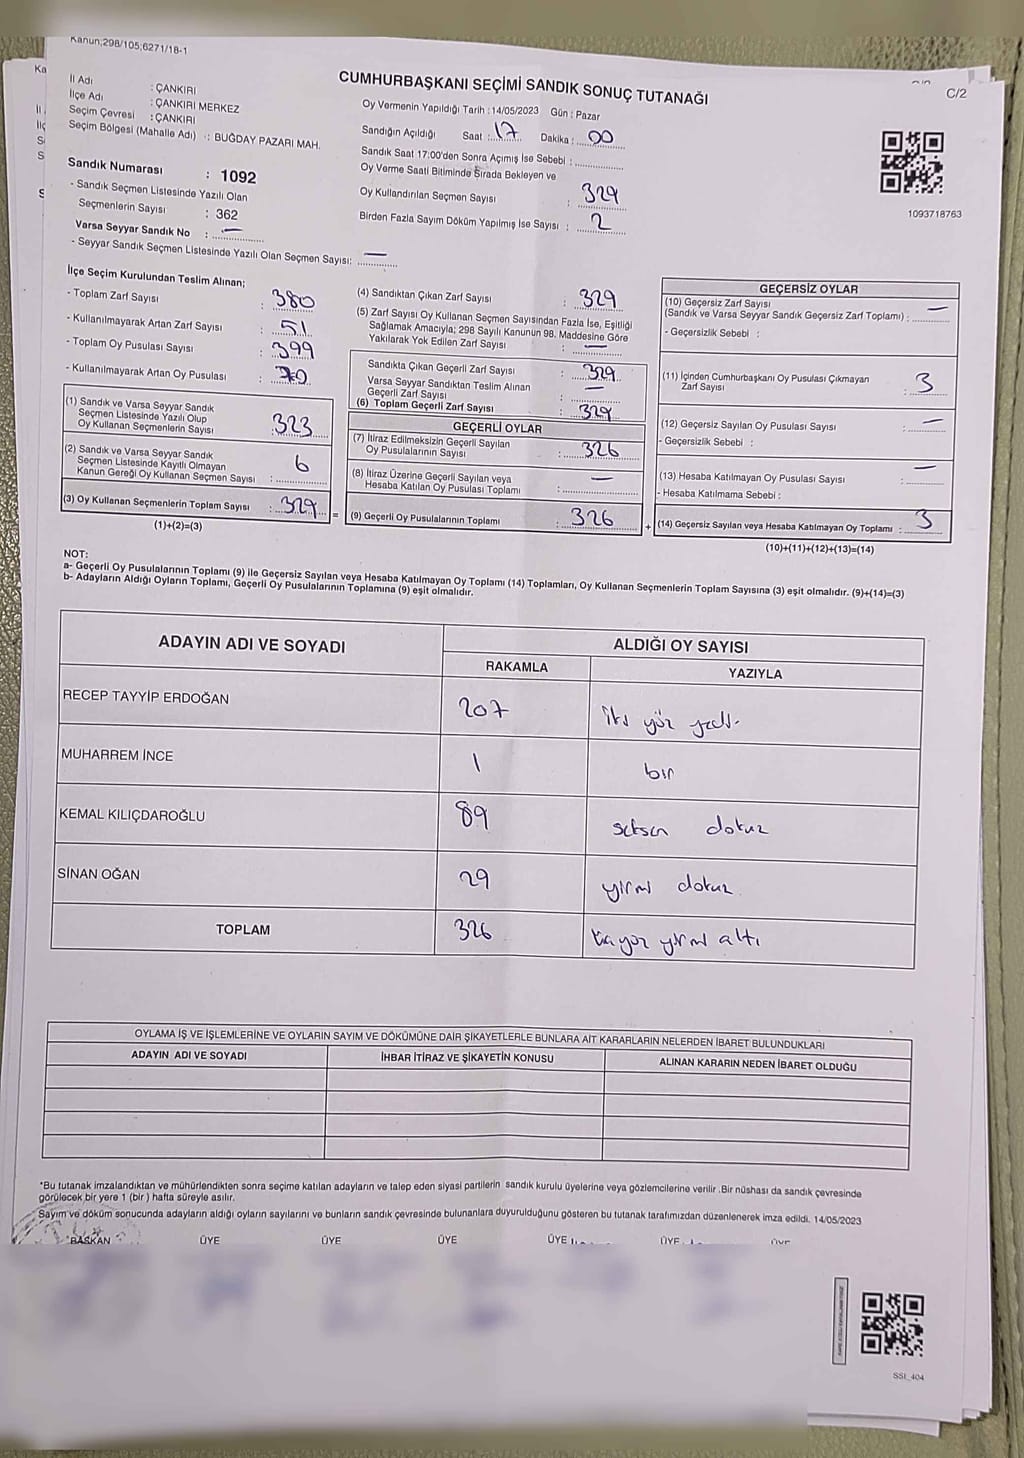 Kanun;298/105;6271/18-1
CUMHURBAŞKANI SEÇİMİ SANDIK SONUÇ TUTANAĞI
C/2
İl Adı : ÇANKIRI
İlçe Adı : ÇANKIRI MERKEZ
Seçim Çevresi : ÇANKIRI
Seçim Bölgesi (Mahalle Adı) : BUĞDAY PAZARI MAH.
Sandık Numarası : 1092
- Sandık Seçmen Listesinde Yazılı Olan
Seçmenlerin Sayısı : 362
Varsa Seyyar Sandık No : —
- Seyyar Sandık Seçmen Listesinde Yazılı Olan Seçmen Sayısı: —
Oy Vermenin Yapıldığı Tarih : 14/05/2023 Gün : Pazar
Sandığın Açıldığı Saat : 17 Dakika : 00
Sandık Saat 17:00'den Sonra Açımış İse Sebebi :
Oy Verme Saati Bitiminde Sırada Bekleyen ve
Oy Kullandırılan Seçmen Sayısı : 329
Birden Fazla Sayım Döküm Yapılmış İse Sayısı : 2
1093718763
İlçe Seçim Kurulundan Teslim Alınan;
- Toplam Zarf Sayısı : 380
- Kullanılmayarak Artan Zarf Sayısı : 51
- Toplam Oy Pusulası Sayısı : 399
- Kullanılmayarak Artan Oy Pusulası : 70
(1) Sandık ve Varsa Seyyar Sandık
Seçmen Listesinde Yazılı Olup
Oy Kullanan Seçmenlerin Sayısı : 323
(2) Sandık ve Varsa Seyyar Sandık
Seçmen Listesinde Kayıtlı Olmayan
Kanun Gereği Oy Kullanan Seçmen Sayısı : 6
(3) Oy Kullanan Seçmenlerin Toplam Sayısı : 329
(1)+(2)=(3)
(4) Sandıktan Çıkan Zarf Sayısı : 329
(5) Zarf Sayısı Oy Kullanan Seçmen Sayısından Fazla İse, Eşitliği
Sağlamak Amacıyla; 298 Sayılı Kanunun 98. Maddesine Göre
Yakılarak Yok Edilen Zarf Sayısı : —
Sandıkta Çıkan Geçerli Zarf Sayısı : 329
Varsa Seyyar Sandıktan Teslim Alınan
Geçerli Zarf Sayısı : —
(6) Toplam Geçerli Zarf Sayısı : 329
GEÇERLİ OYLAR
(7) İtiraz Edilmeksizin Geçerli Sayılan
Oy Pusulalarının Sayısı : 326
(8) İtiraz Üzerine Geçerli Sayılan veya
Hesaba Katılan Oy Pusulası Toplamı : —
= (9) Geçerli Oy Pusulalarının Toplamı : 326 +
GEÇERSİZ OYLAR
(10) Geçersiz Zarf Sayısı
(Sandık ve Varsa Seyyar Sandık Geçersiz Zarf Toplamı) : —
- Geçersizlik Sebebi :
(11) İçinden Cumhurbaşkanı Oy Pusulası Çıkmayan
Zarf Sayısı : 3
(12) Geçersiz Sayılan Oy Pusulası Sayısı : —
- Geçersizlik Sebebi :
(13) Hesaba Katılmayan Oy Pusulası Sayısı : —
- Hesaba Katılmama Sebebi :
(14) Geçersiz Sayılan veya Hesaba Katılmayan Oy Toplamı : 3
(10)+(11)+(12)+(13)=(14)
NOT:
a- Geçerli Oy Pusulalarının Toplamı (9) ile Geçersiz Sayılan veya Hesaba Katılmayan Oy Toplamı (14) Toplamları, Oy Kullanan Seçmenlerin Toplam Sayısına (3) eşit olmalıdır. (9)+(14)=(3)
b- Adayların Aldığı Oyların Toplamı, Geçerli Oy Pusulalarının Toplamına (9) eşit olmalıdır.
ADAYIN ADI VE SOYADI ALDIĞI OY SAYISI
RAKAMLA YAZIYLA
RECEP TAYYİP ERDOĞAN 207 iki yüz yedi
MUHARREM İNCE 1 bir
KEMAL KILIÇDAROĞLU 89 seksen dokuz
SİNAN OĞAN 29 yirmi dokuz
TOPLAM 326 üç yüz yirmi altı
OYLAMA İŞ VE İŞLEMLERİNE VE OYLARIN SAYIM VE DÖKÜMÜNE DAİR ŞİKAYETLERLE BUNLARA AİT KARARLARIN NELERDEN İBARET BULUNDUKLARI
ADAYIN ADI VE SOYADI İHBAR İTİRAZ VE ŞİKAYETİN KONUSU ALINAN KARARIN NEDEN İBARET OLDUĞU
*Bu tutanak imzalandıktan ve mühürlendikten sonra seçime katılan adayların ve talep eden siyasi partilerin sandık kurulu üyelerine veya gözlemcilerine verilir .Bir nüshası da sandık çevresinde
görülecek bir yere 1 (bir ) hafta süreyle asılır.
Sayım ve döküm sonucunda adayların aldığı oyların sayılarını ve bunların sandık çevresinde bulunanlara duyurulduğunu gösteren bu tutanak tarafımızdan düzenlenerek imza edildi. 14/05/2023
BAŞKAN ÜYE ÜYE ÜYE ÜYE ÜYE ÜYE
SSI_404